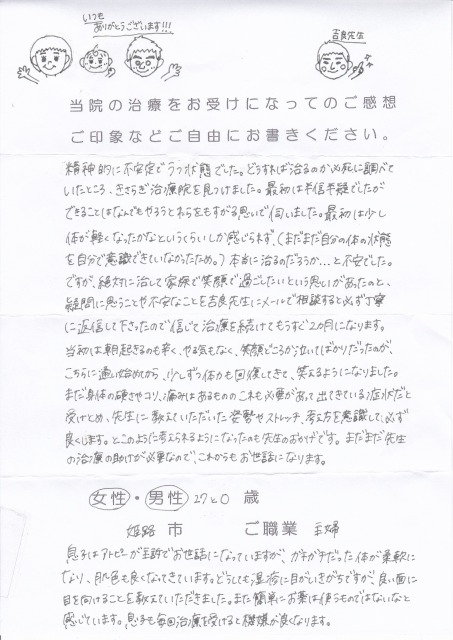 いつも
ありがとうございます!!!
吉良先生
当院の治療をお受けになってのご感想
ご印象などご自由にお書きください。
精神的に不安定でうつ状態でした。どうすれば治るのか必死に調べて
いたところ、きさらぎ治療院を見つけました。最初は半信半疑でしたが
できることはなんでもやろうとわらをもすがる思いで伺いました。最初は少し
体が軽くなったかなというくらいしか感じられず、(まだまだ自分の体の状態
を自分で意識できていなかったため。)本当に治るのだろうか…と不安でした。
ですが、絶対に治して家族で笑顔で過ごしたいという思いがあったのと、
疑問に思うことや不安なことを吉良先生にメールで相談すると必ず丁寧
に返信して下さったので信じて治療を続けてもうすぐ2カ月になります。
当初は朝起きるのも辛く、やる気もなく、笑顔どころか泣いてばかりだったのが、
こちらに通い始めてから、少しずつ体力も回復してきて、笑えるようになりました。
まだ身体の硬さやコリ、痛みはあるもののこれも必要があって出てきている症状だと
受けとめ、先生に教えていただいた姿勢やストレッチ、考え方を意識して、必ず
良くします。とこのように考えられるようになったのも先生のおかげです。まだまだ先生
の治療の助けが必要なので、これからもお世話になります。
女性・男性 27と0 歳
姫路 市 ご職業 主婦
息子はアトピーが主訴でお世話になっていますが、ガチガチだった体が柔軟に
なり、肌色も良くなってきています。どうしても湿疹に目がいきがちですが、良い面に
目を向けることを教えていただきました。また簡単にお薬は使うものではないなと
感じています。息子も毎回治療を受けると機嫌が良くなります。